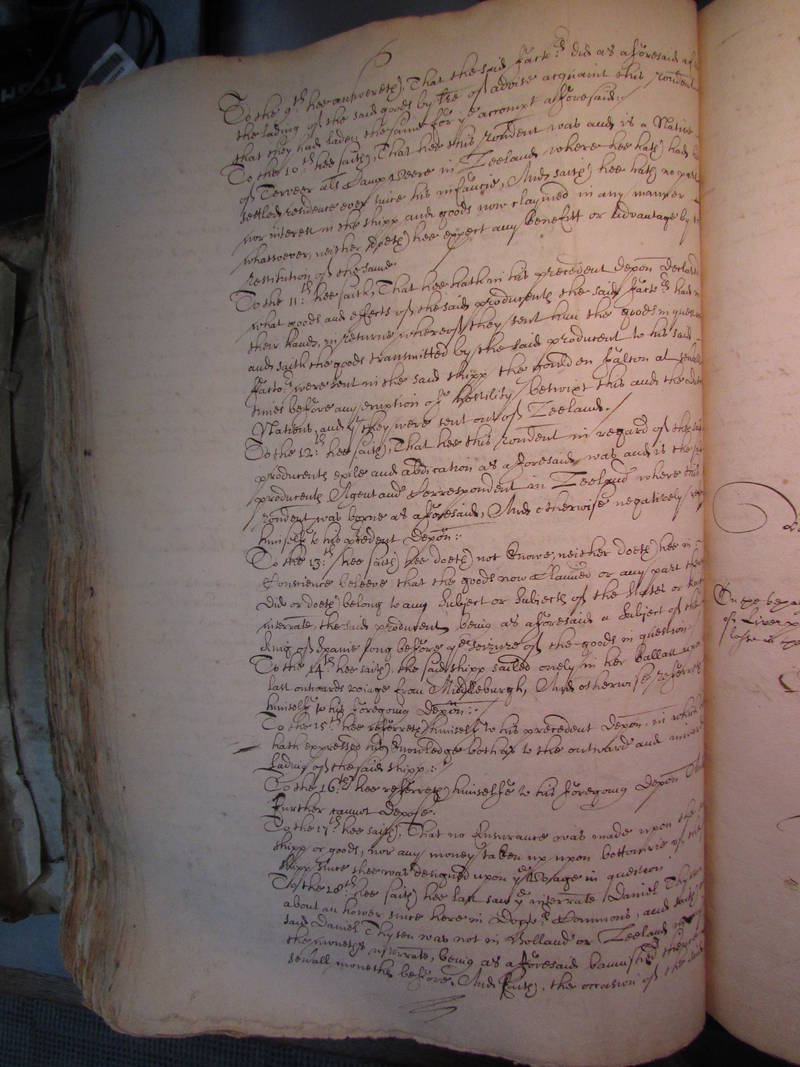 To the 9th hee answereth, That the said factors did as aforesaid
the lading of the said goods by lre of advise acquaint this rondent
that they had laden the same for ye accompt aforesaid./
To the 10th hee saith, That hee this rondent was and is a Native
of Terveer als Camp Vere in Zeeland where hee hath had
setled residence ever since his infancie, And saith hee hath no
nor interest in the shipp and goods now claymed in any manner
whatsoever, neither doeth hee expect any benefitt or advantage by
restitution of the same.
To the 11th hee saith, That hee hath in his precedent depon declared
what goods and effects of the said producents the said factors had in
their hands, in returne whereof they sent him the goods in question
and saith the goods transmitted by the said producent to his said
factors were sent in the said shipp the Goulden Falcon at
times before any eruption of hostility betwixt this and the
Nations, and yt they were sent out of Zeeland./
To the 12th hee saith, That hee this rondent in regard of the said
producents exile and abdication as aforesaid, was and is the said
producents Agent and Correspondent in Zeeland where this
rondent was borne as aforesaid, And otherwise negatively
himself to his precedent depon:
To the 13th hee saith hee doeth not knowe, neither doeth hee in
Conscience beleeve that the goods now claimed or any part
did or doeth belong to any Subject or Subjects of the States or
interrate, the said producent being as aforesaid a Subject of the
King of Spaine long before ye seizure of the goods in question
To the 14th hee saith, the said shipp sailed onely in her ballast
last outwards voiage from Middleburgh, And otherwise referreth
himself to his foregoing depon:
To the 15th hee referreth himself to his precedent depon, in which
hath expressed his knowledge both as to the outward and inward
lading of the said shipp:
To the 16th hee referreth himselfe to his foregoing depon
further cannot depose.
To the 17th hee saith, That no insurance was made upon the
shipp or goods, nor any money taken up upon bottomrie of the
shipp since shee was designed upon ye voiage in question
To the 18th hee saith hee last saw ye interrate Daniel Thysen
about an hower since here in Doctors Commons, and saith
said Daniel Thysen was not in Holland or Zeeland
the moneths interrate, being as aforesaid bannished
severall moneths before, And saith, the occasion of the
of Liverp